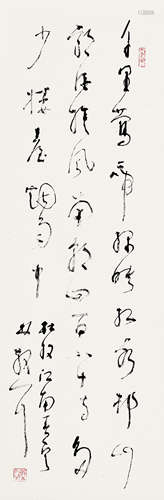 千里鶯啼綠映紅水村山
郭酒旗風南朝四百八十寺多
少樓臺煙雨中
杜牧江南春
林散耳